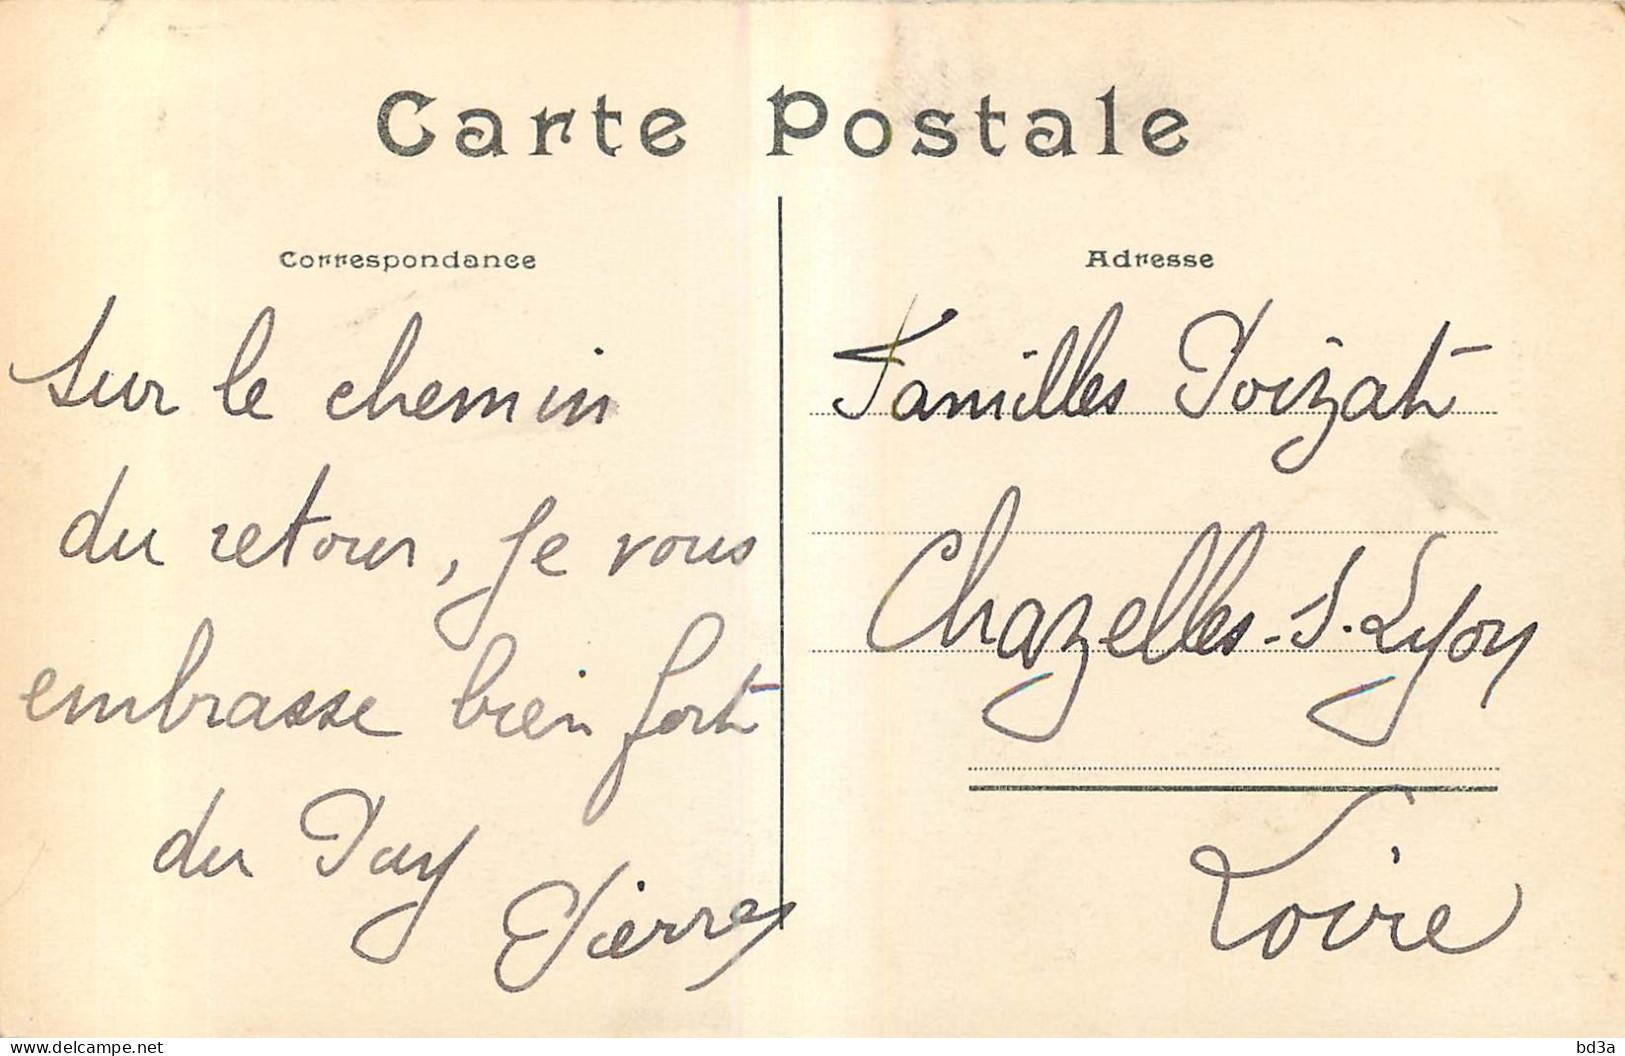 Carte Postale
Correspondance
Sur le chemin
du retour, je vous
embrasse bien fort
du Puy
Pierre
Adresse
Familles Poizat
Chazelles-s.-Lyon
Loire
www.delcampe.net
bd3a